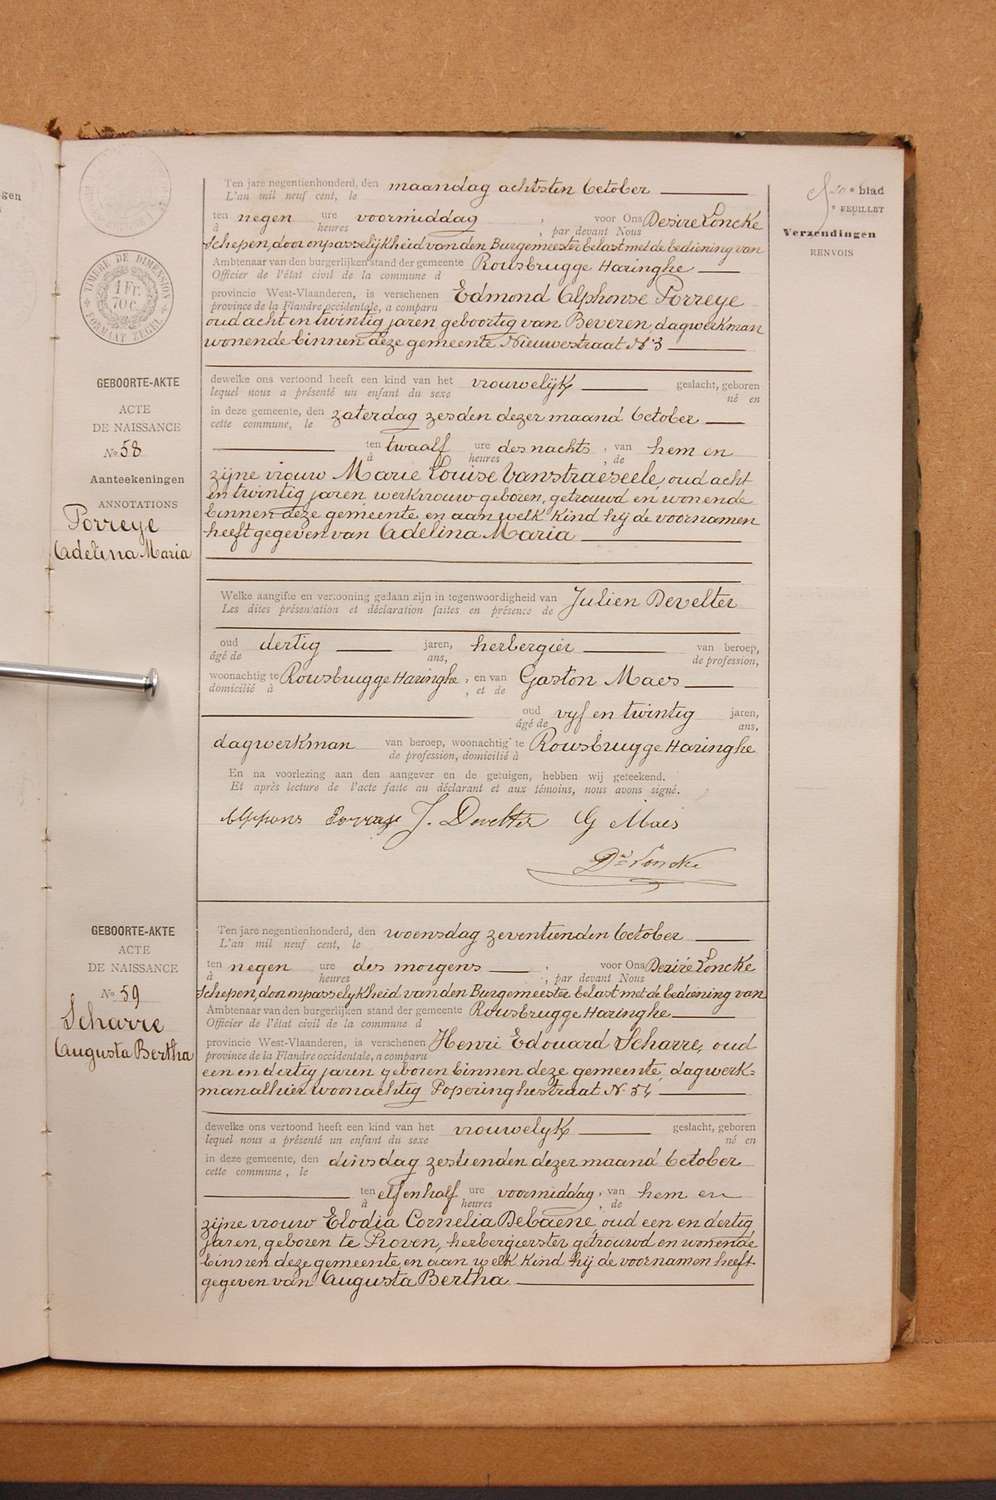 gen
blad
FEUILLET
Verzendingen
RENVOIS
TIMBRE DE DIMENSION
1 Fr.
70 c.
FORMAAT ZEGEL
GEBOORTE-AKTE
ACTE
DE NAISSANCE
No 58
Aanteekeningen
ANNOTATIONS
Porreye
Adelina Maria
Ten jare negentienhonderd, den maandag achtsten October
L'an mil neuf cent, le
ten negen ure voormiddag ; voor Ons Desiré Loncke
à heures ; par devant Nous
Schepen, door onpasselijkheid van den Burgemeester belast met de bediening van
Ambtenaar van den burgerlijken stand der gemeente Rousbrugge Haringhe
Officier de l'état civil de la commune d
provincie West-Vlaanderen, is verschenen Edmond Alphonse Porreye
province de la Flandre occidentale, a comparu
oud acht en twintig jaren geboortig van Beveren, dagwerkman
wonende binnen deze gemeente Nieuwestraat No 3
dewelke ons vertoond heeft een kind van het vrouwelijk geslacht, geboren
lequel nous a présenté un enfant du sexe né en
in deze gemeente, den zaterdag zesden dezer maand October
cette commune, le
ten twaalf ure des nachts, van hem en
à heures , de
zijne vrouw Marie Louise Vanstraeseele, oud acht
en twintig jaren werkvrouw geboren, getrouwd en wonende
binnen deze gemeente en aan welk kind hij de voornamen
heeft gegeven van Adelina Maria
Welke aangifte en vertooning gedaan zijn in tegenwoordigheid van Julien Develter
Les dites présentation et déclaration faites en présence de
oud dertig jaren, herbergier van beroep,
âgé de ans, de profession,
woonachtig te Rousbrugge Haringhe, en van Gaston Maes
domicilié à , et de
oud vyf en twintig jaren,
âgé de ans,
dagwerkman van beroep, woonachtig te Rousbrugge Haringhe
de profession, domicilié à
En na voorlezing aan den aangever en de getuigen, hebben wij geteekend.
Et après lecture de l'acte faite au déclarant et aux témoins, nous avons signé.
Alppons Porraye J. Develter G Maes
Dré Loncke
GEBOORTE-AKTE
ACTE
DE NAISSANCE
No 59
Scharre
Augusta Bertha
Ten jare negentienhonderd, den woensdag zeventienden October
L'an mil neuf cent, le
ten negen ure des morgens ; voor Ons Desiré Loncke
à heures ; par devant Nous
Schepen, door onpasselykheid van den Burgemeester belast met de bediening van
Ambtenaar van den burgerlijken stand der gemeente Rousbrugge Haringhe
Officier de l'état civil de la commune d
provincie West-Vlaanderen, is verschenen Henri Edouard Scharre, oud
province de la Flandre occidentale, a comparu
een en dertig jaren geboren binnen deze gemeente, dagwerk=
man alhier woonachtig Poperinghestraat No 54
dewelke ons vertoond heeft een kind van het vrouwelyk geslacht, geboren
lequel nous a présenté un enfant du sexe né en
in deze gemeente, den dinsdag zestienden dezer maand October
cette commune, le
ten elf en half ure voormiddag, van hem en
à heures , de
zijne vrouw Elodia Cornelia Debaene, oud een en dertig
jaren, geboren te Proven, herbergierster getrouwd en wonende
binnen deze gemeente, en aan welk kind hij de voornamen heeft
gegeven van Augusta Bertha